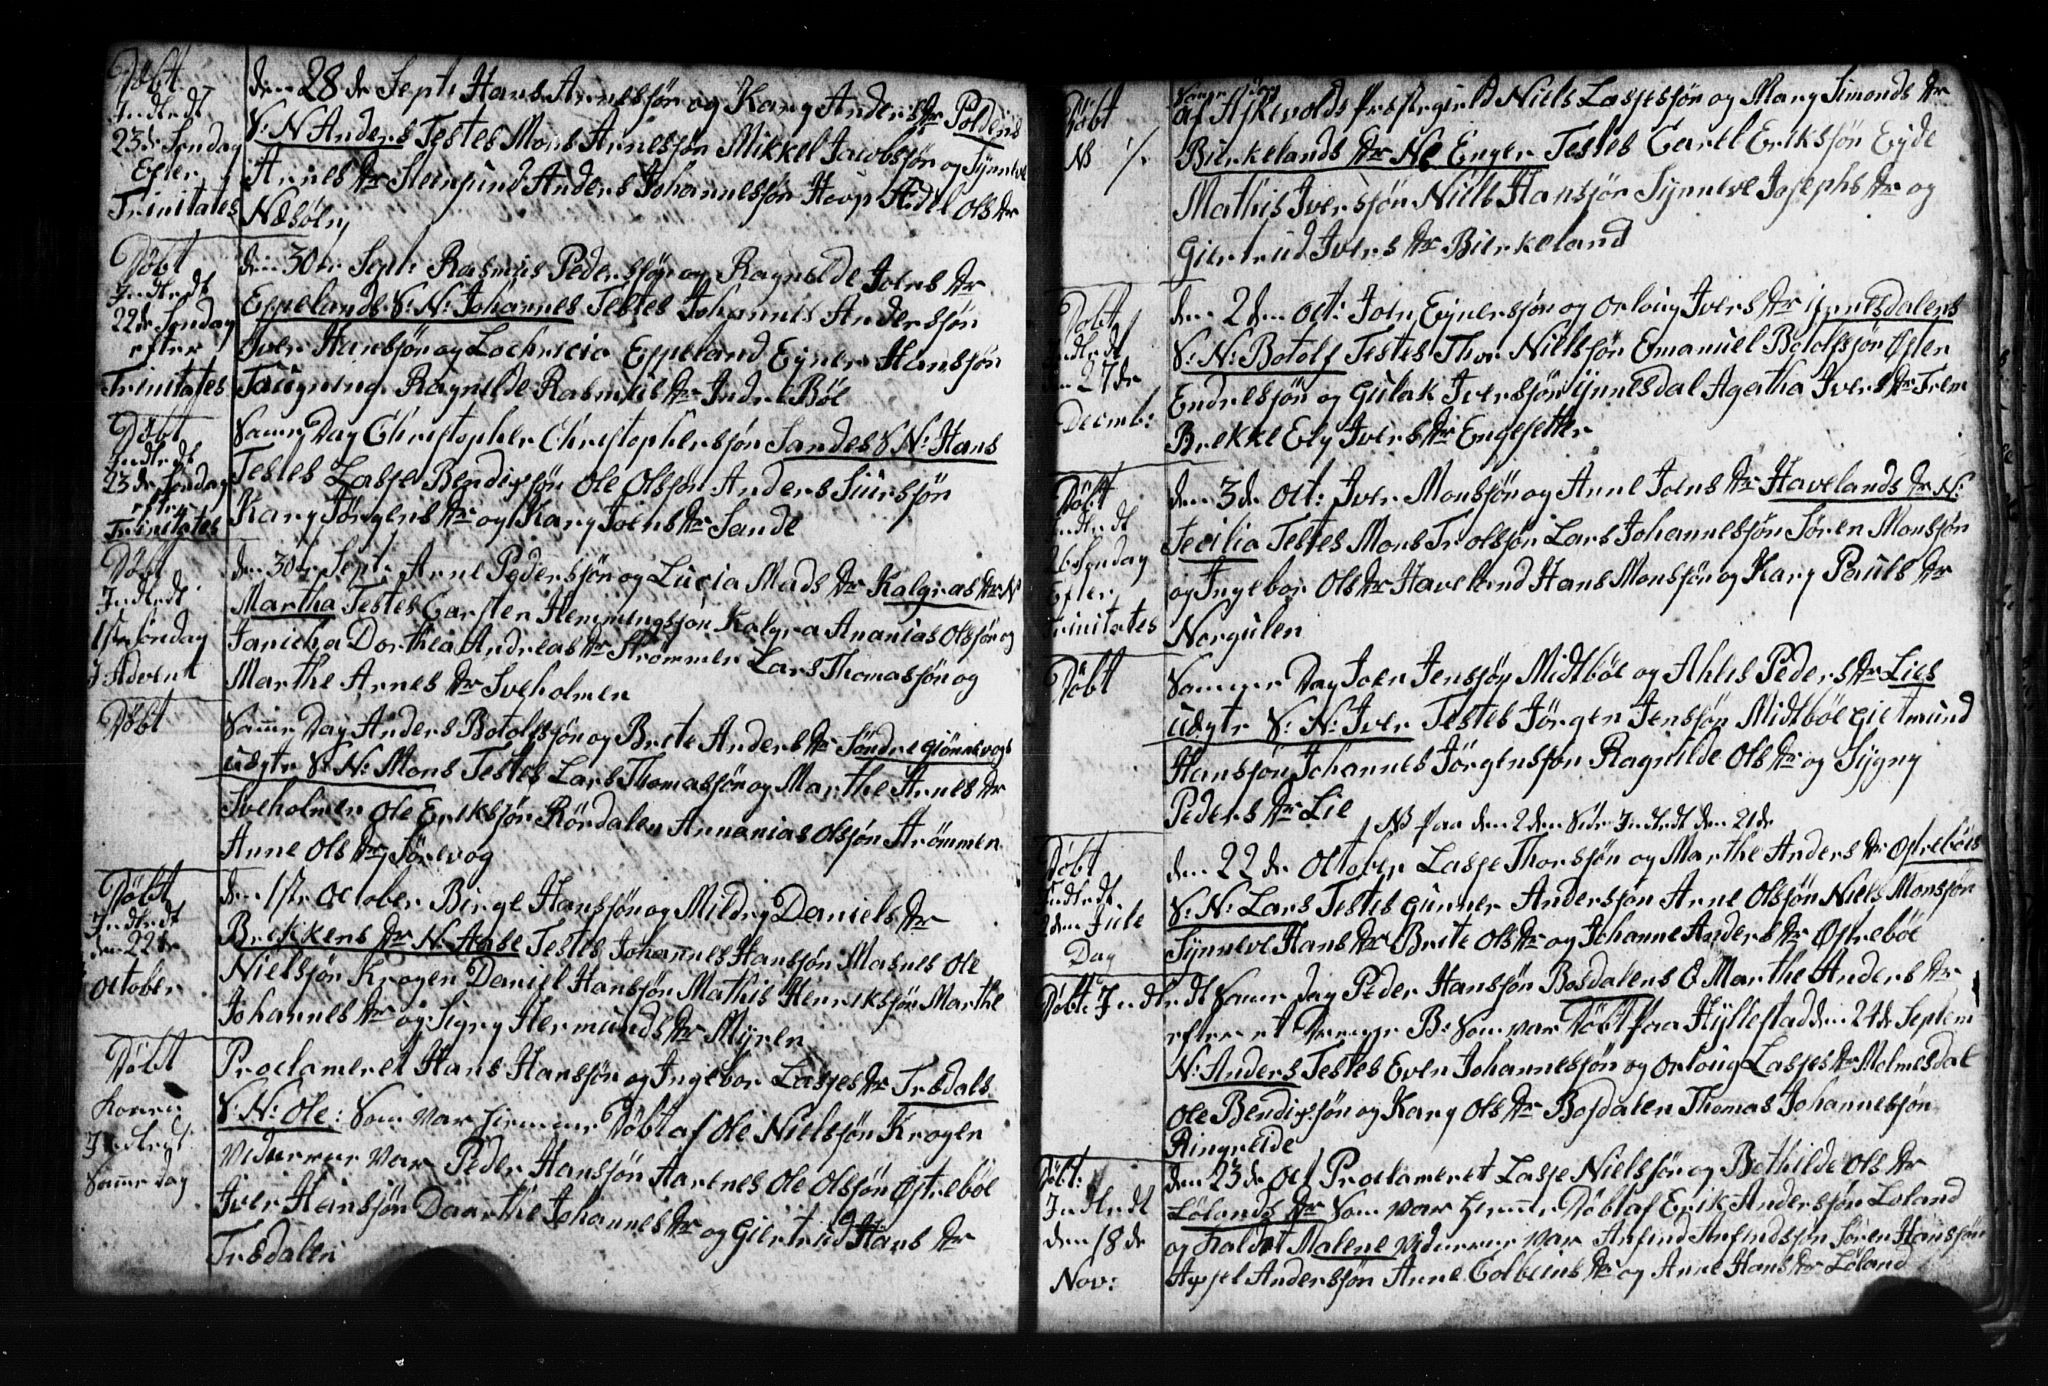 Döbt
Indledt
23de Søndag
Efter
Trinitates
den 28de Sept: Hans Arnessjön og Kary Anders dr Poldens
S: N Anders Testes Mons Arnessjön Mikkel Jacobssjön og Synneve
Arnes dr Steinsund Anders Johannessjön Hovp Adel Ols dr
Næsöly
Döbt
Indledt
22de Søndag
efter
Trinitates
den 30te Sept: Rasmus Pederssjön og Ragnilde Joens dr
Eppelands S: N: Johannes Testes Johannes Anderssjön
Iver Hanssjön og Eppeland Eyner Hanssjön
Ragnilde Rasmus dr Indre Böe
Döbt
Indledt
23de Søndag
efter
Trinitates
Samme Dag Christopher Christopherssjön Sandes S N: Hans
Testes Lasse Bendixsjön Ole Olssjön Anders Siurssjön
Kary Jörgens dr og Kary Joens dr Sande
Döbt
Indledt
1ste Søndag
I Advent
den 30te Sept: Arne Pederssjön og Lucia Mads dr Kalgraes dr N
Martha Testes Carsten Hemmingssjön Kalgra Ananias Olssjön og
Janicha Dorthea Andreas dr Strömmen Lars Thomassjön og
Marthe Arnes dr Sveholmen
Döbt
Samme Dag Anders Botolfssjön og Brete Anders dr Söndre Giönnevogs
udgte S: N: Mons Testes Lars Thomassjön og Marthe Arnes dr
Sveholmen Ole Erikssjön Rördalen Annanias Olssjön Strömmen
Anne Ols dr Sörevog
Döbt
Indledt
den 22de
October
den 1ste October Birge Hanssjön og Mildry Daniels dr
Brekkens dr N. Aase Testes Johannes Hanssjön Masnes Ole
Nielssjön Krogen Daniel Hanssjön Mathis Henrikssjön Marthe
Johannes dr og Sigry Hermunds dr Myren
Döbt
Indledt
Samme dag
Proclameret Hans Hanssjön og Ingebor Lasses dr Træsdals
S: N: Ole: Som var hiemme Döbt af Ole Nielssjön Krogen
Viderre var Peder Hanssjön Aarenes Ole Olssjön Östreböe
Iver Hanssjön Daarthe Johannes dr og Giertrud Hans dr
Træsdalen
Döbt
NB %
af Askevolds Prestegield Niels Lassessjön og Mary Simonds dr
Birkelands dr Ne Enger Testes Carel Erikssjön Eyde
Mathis Iverssjön Niels Hanssjön Synneve Josephs dr og
Giertrud Ivers dr Birkeland
Döbt
Indledt
den 27de
Decemb:
den 2den Oct: Joen Eynerssjön og Orloug Ivers dr Ynnesdalens
S: N: Botolf Testes Thor Nielssjön Emanuel Botolfssjön Östen
Endressjön og Gulak Iverssjön Ynnesdal Agatha Ivers dr Frem
Brekke Ely Ivers dr Engesetter
Döbt
Indledt
26 Søndag
Efter
Trinitates
den 3de Oct: Iver Monssjön og Anne Joens dr Havelands dr N:
Secilia Testes Mons Trolssjön Lars Johannessjön Sören Monssjön
og Ingebor Ols dr Haveland Hans Monssjön og Kary Pauls dr
Norgulen
Döbt
Samme Dag Joen Jenssjön Midtböe og Ahlis Peders dr Lies
udgte S: N: Iver Testes Jörgen Jenssjön Midtböe Gietmund
Hanssjön Johannes Jörgenssjön Ragnilde Ols dr og Sygny
Peders dr Lie
NB paa den 2den Side Indledt den 21de
Döbt
Indledt
2den Jule
Dag
den 22de October Lasse Thorssjön og Marthe Anders dr Östreböes
S: N: Lars Testes Gunner Anderssjön Arne Olssjön Niels Monssjön
Synneve Hans dr Brete Ols dr og Johanne Anders dr Östreböe
Döbt: Indledt Samme Dag Peder Hanssjön Bosdalens & Marthe Anders dr
efter et Drenge B: Som var Döbt paa Hyllestad den 24de Septem
N: Anders Testes Even Johannessjön og Orloug Lasses dr Holmesdal
Ole Bendixsjön og Kary Ols dr Bosdalen Thomas Johannessjön
Ringreide
Döbt:
Indledt
den 18de
Nov:
den 23de Oct Proclameret Lasse Nielssjön og Bethilde Ols dr
Lölands dr Som var hiemme Döbt af Erik Anderssjön Löland
og kaldet Malene viderre var Anfind Anfindssjön Sören Hanssjön
Axsel Anderssjön Anne Colbeins dr og Anne Hans dr Löland